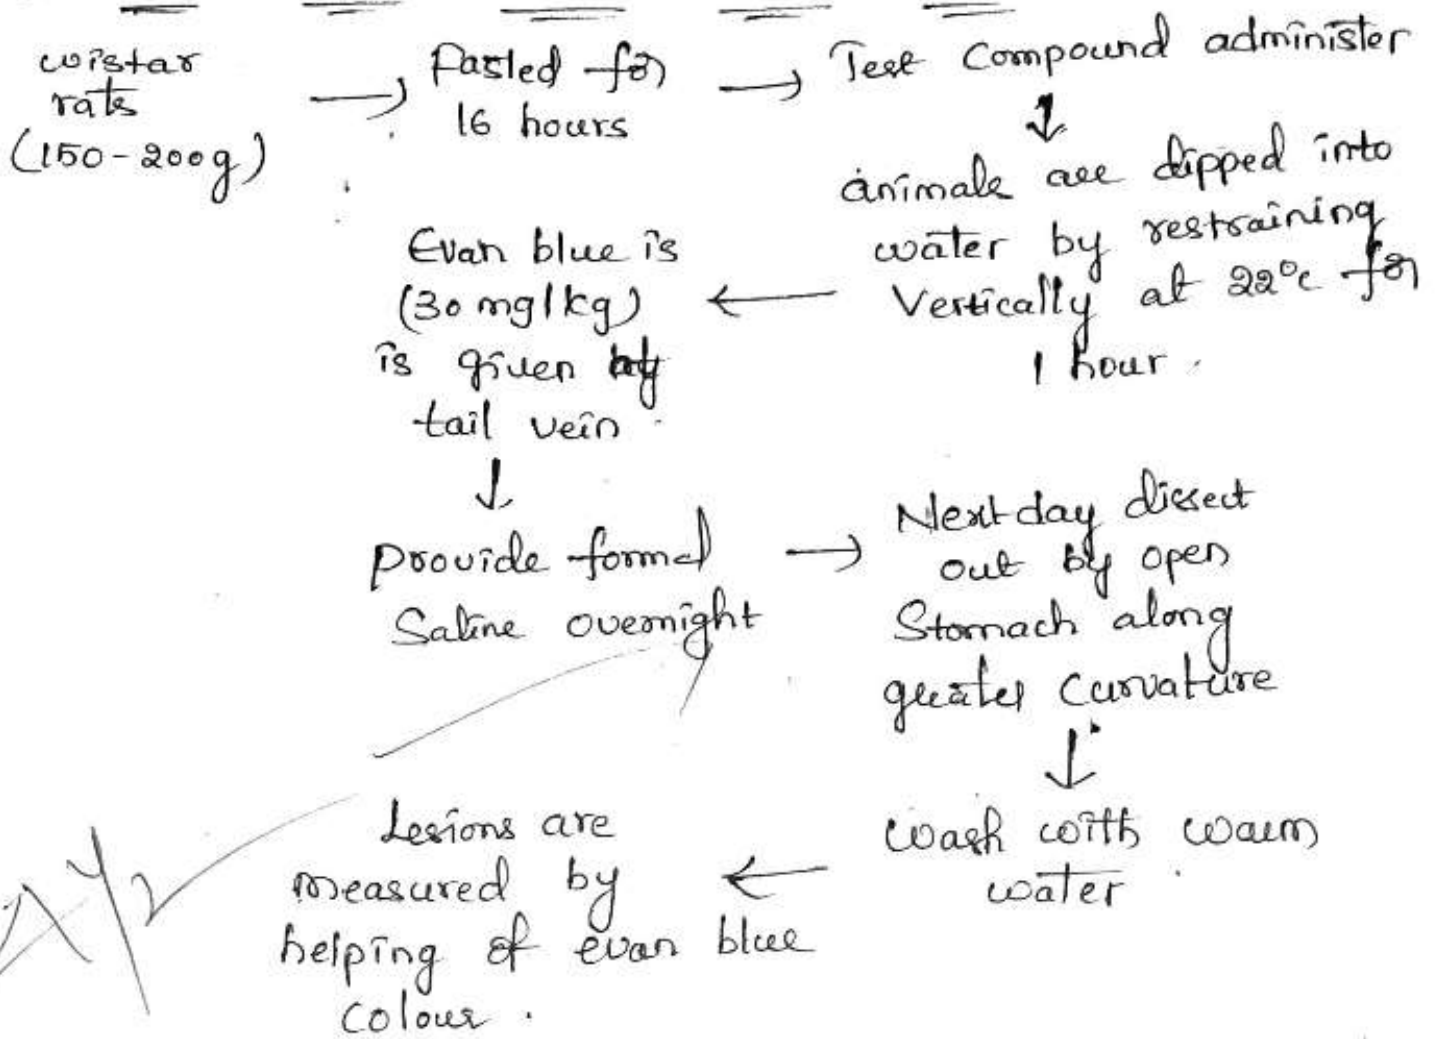 wistar
rats
(150-200g)
→ Fasted for
16 hours
→ Test Compound administer
↓
animals are dipped into
water by restraining
Vertically at 22°c for
1 hour.
← Evan blue is
(30 mg/kg)
is given by
tail vein.
↓
provide formal
Saline overnight
→ Next day dissect
out by open
Stomach along
greater Curvature
↓
Wash with warm
water.
← Lesions are
measured by
helping of evan blue
colour.